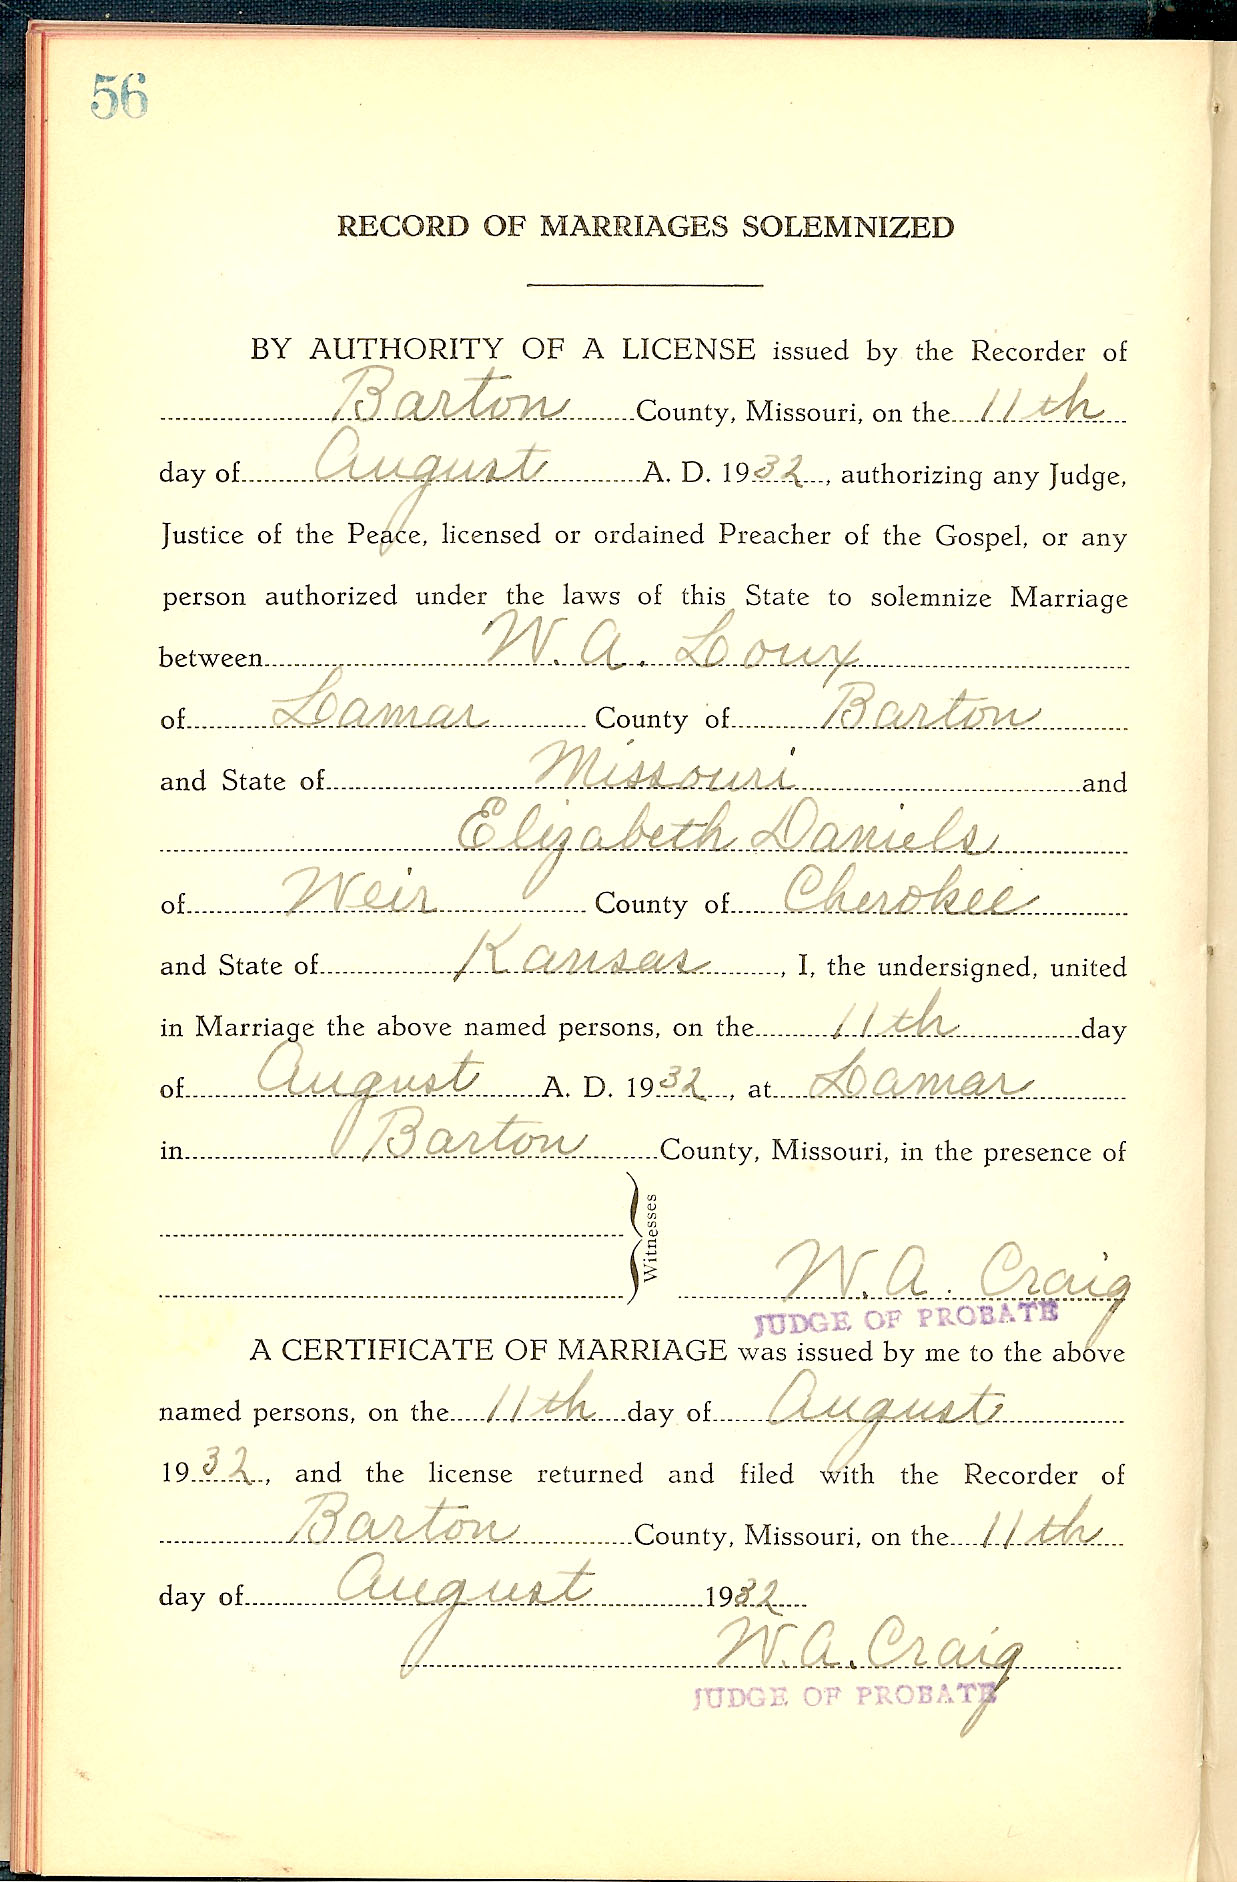 56
RECORD OF MARRIAGES SOLEMNIZED
BY AUTHORITY OF A LICENSE issued by the Recorder of
Barton County, Missouri, on the 11th
day of August A. D. 1932, authorizing any Judge,
Justice of the Peace, licensed or ordained Preacher of the Gospel, or any
person authorized under the laws of this State to solemnize Marriage
between W. A. Loux
of Lamar County of Barton
and State of Missouri and
Elizabeth Daniels
of Weir County of Cherokee
and State of Kansas, I, the undersigned, united
in Marriage the above named persons, on the 11th day
of August A. D. 1932, at Lamar
in Barton County, Missouri, in the presence of
Witnesses
W. A. Craig
JUDGE OF PROBATE
A CERTIFICATE OF MARRIAGE was issued by me to the above
named persons, on the 11th day of August
1932, and the license returned and filed with the Recorder of
Barton County, Missouri, on the 11th
day of August 1932
W. A. Craig
JUDGE OF PROBATE